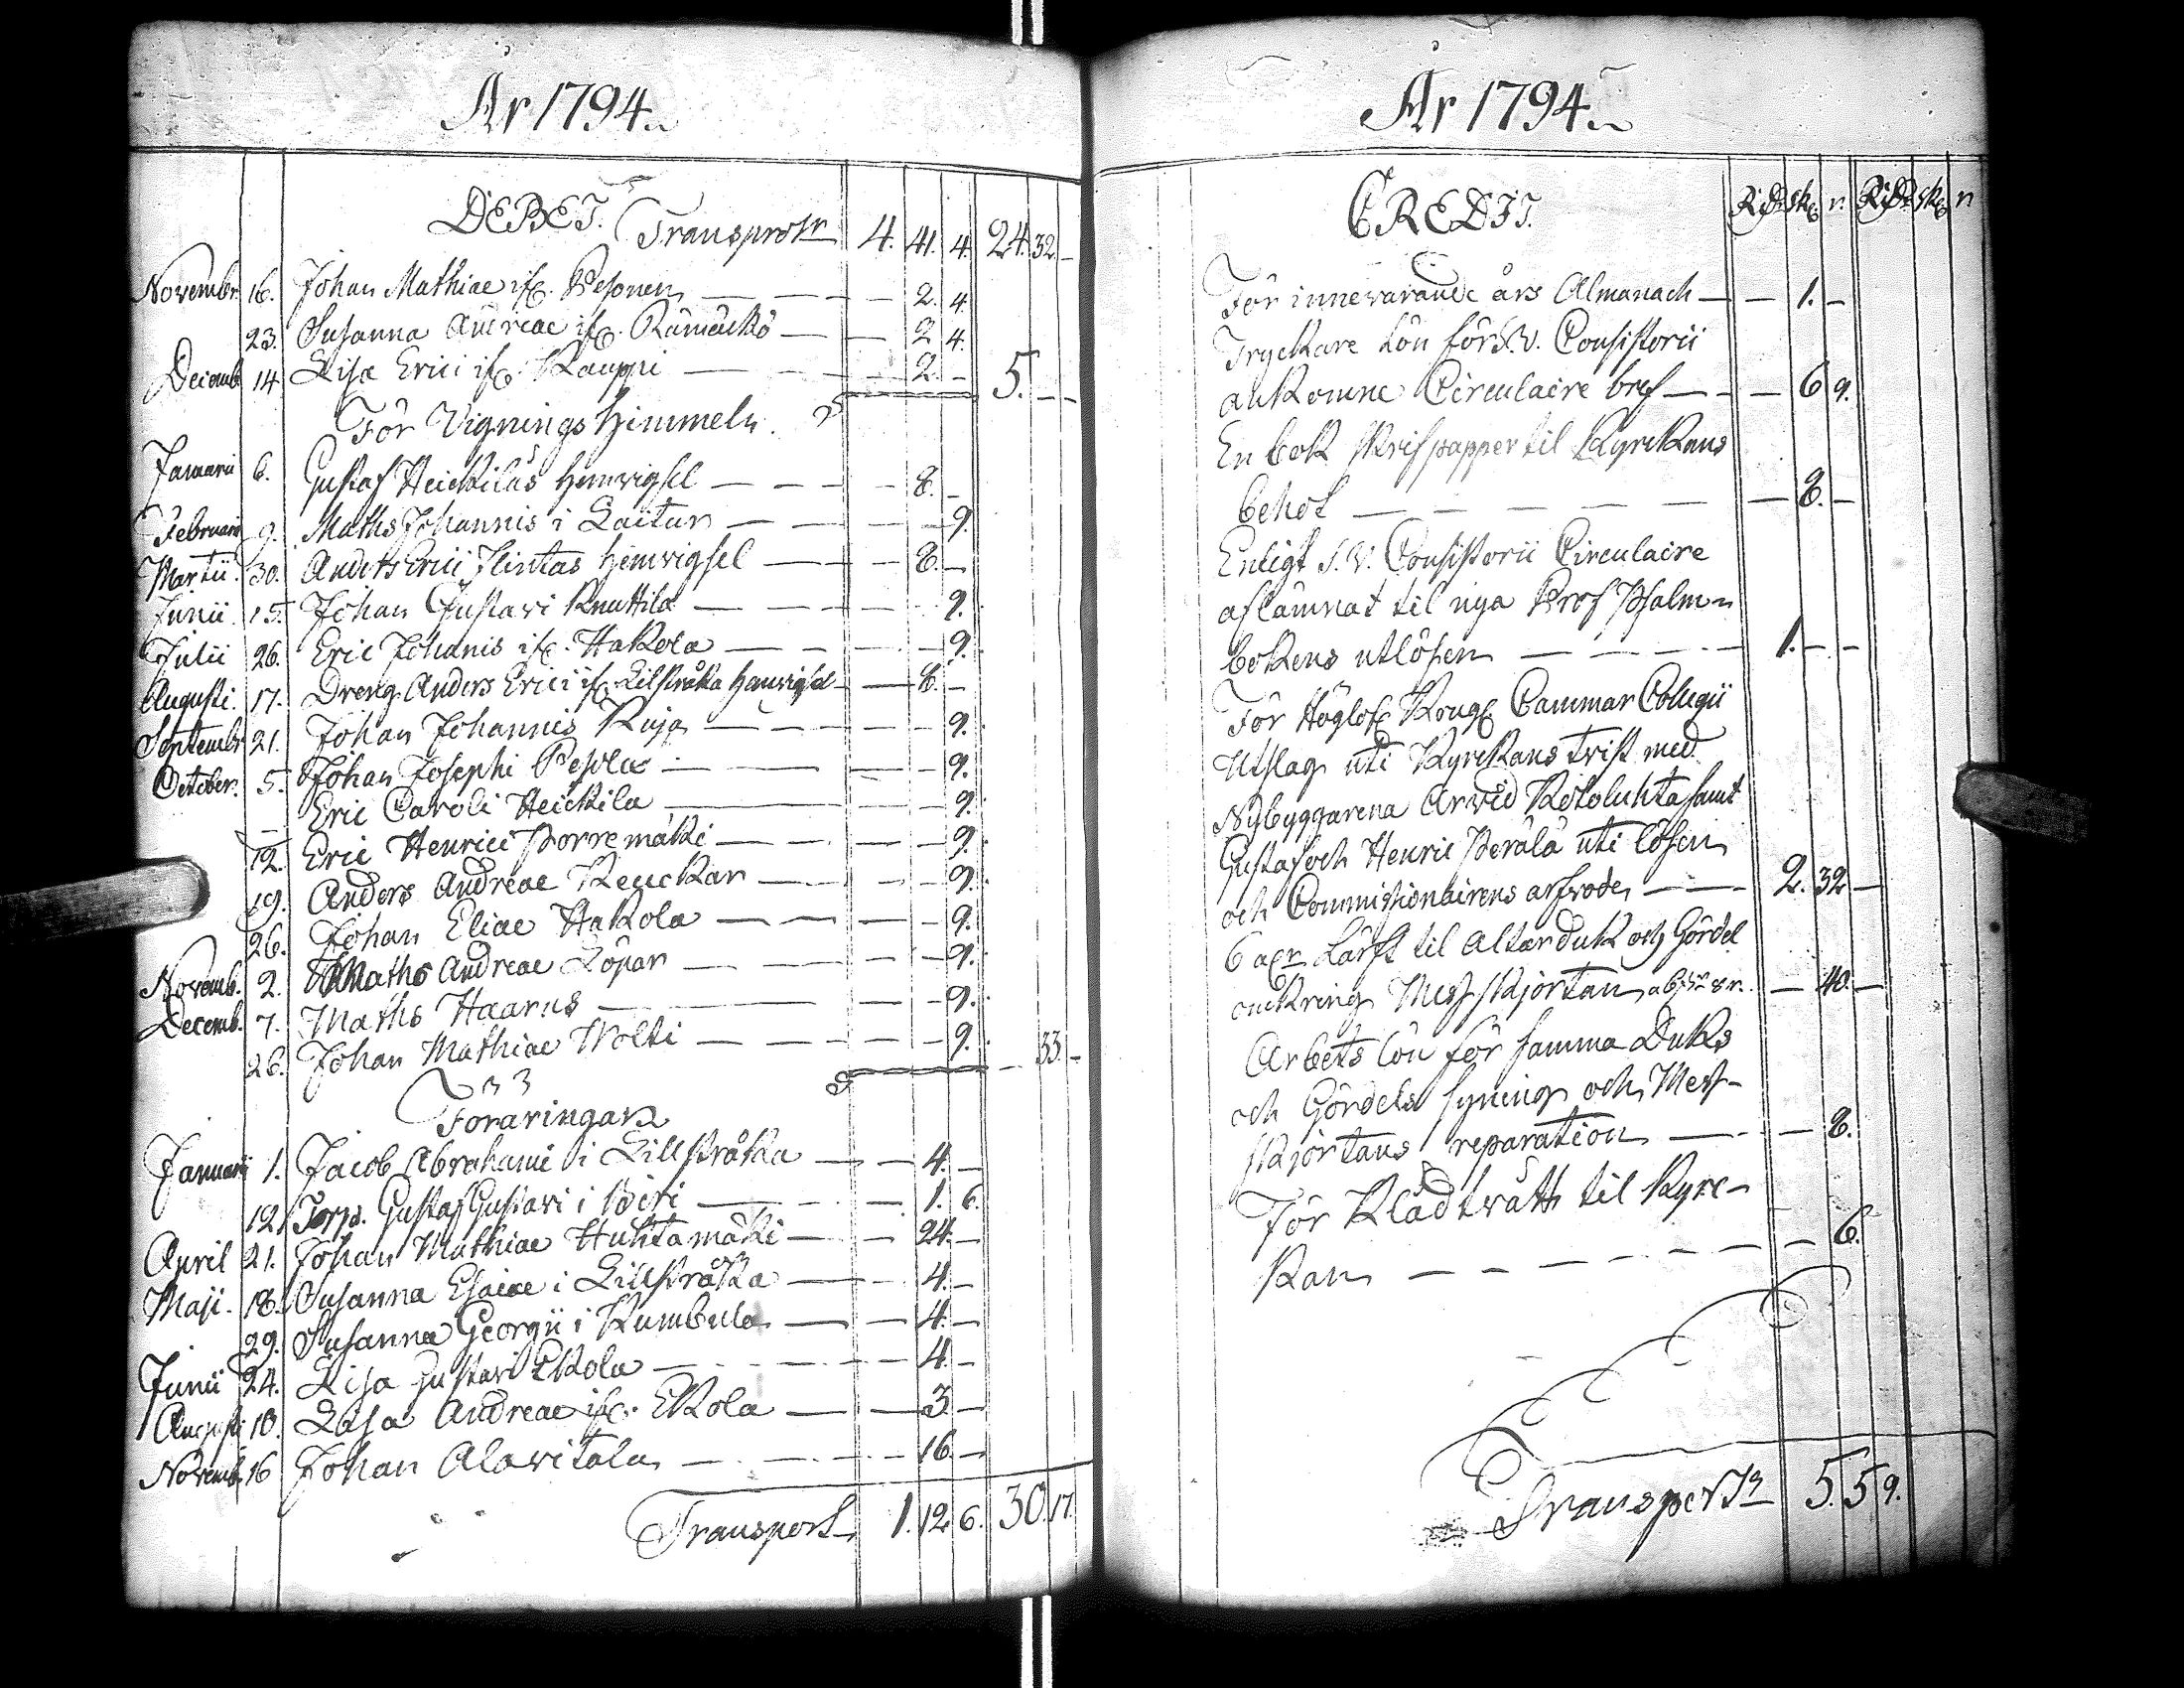 År 1794.
DEBET. Transport 4. 41. 4. 24. 32. -
Novembr. 16. Johan Mathiae if. Pesonen - - - 2. 4.
23. Susanna Andreae if. Rämäckö - - 2 4.
Decemb. 14 Lisa Erici if. Kauppi - - - 2. - 5. - -
För Vignings Himmeln.
Januarii 6. Gustaf Heickiläs hemvigsel - - - 8. -
Februarii 9. Maths Johannis i Laitar - - - 9.
Martii. 30. Anders Erici Flintas hemvigsel - - - 8. -
Junii. 15. Johan Gustavi Knuttila - - - 9.
Julii 26. Eric Johanis if. Hakola - - - 9.
Augusti. 17. Dreng. Anders Erici if. Lillstråka hemvigsel - 8. -
Septembr 21. Johan Johannis Ruja - - - 9.
October. 5. Johan Josephi Pesola - - - 9.
- Eric Caroli Heickila - - - 9.
12. Eric Henrici Porremäki - - - 9.
19. Anders Andreae Keuckar - - - 9.
26. Johan Eliae Hakola - - - 9.
Novemb. 2. Maths Andreae Löpar - - - 9.
Decemb. 7. Maths Haarus - - - 9.
26. Johan Mathiae Wolti - - - 9. 33. -
Föräringar
Januarii 1. Jacob Abrahami i Lillstråka - - 4. -
12. Torp. Gustaf Gustavi i - - 1. 6.
April 21. Johan Mathiae Huhtamäki - - 24. -
Maji. 18. Susanna Esaiae i Lillstråka - - 4. -
29. Susanna Georgii i Kumbula - - 4. -
Junii 24. Lisa Gustavi Ekola - - - 4. -
Augusti 10. Caisa Andreae if. Ekola - - 3 -
Novemb. 16 Johan Alavitala - - - 16. -
Transport 1. 12. 6. 30. 17.
År 1794.
CREDIT. Rdr sk. r. Rdr sk. r
För innevarande års Almanach - - 1. -
Tryckare Lön för S. V. Consistorii
ankomne Circulaire bref - - - 6 9.
En bok skrifpapper til Kyrckans
behof - - - - - 8. -
Enligt S. V. Consistorii Circulaire
aflämnat til nya Prof Psalm-
bokens utlösen - - - 1. - -
För Höglof. Kongl. Cammar Collegii
Utslag uti Kyrckans tvist med
Nybyggarena Arvid Ketoluhta samt
Gustaf och Henric Perälä uti lösen
och Commissionairens arfvode - - 2. 32 -
6 aln Lärft til Altarduk och Gördel
omkring Mess skjortan - 40. -
Arbets lön för samma Duks
och Gördels syning och Mess-
skjortans reparation - - - 8.
För Klädtvätt til Kyrc-
kan - - - - - - 6.
Transport 5. 5 9.